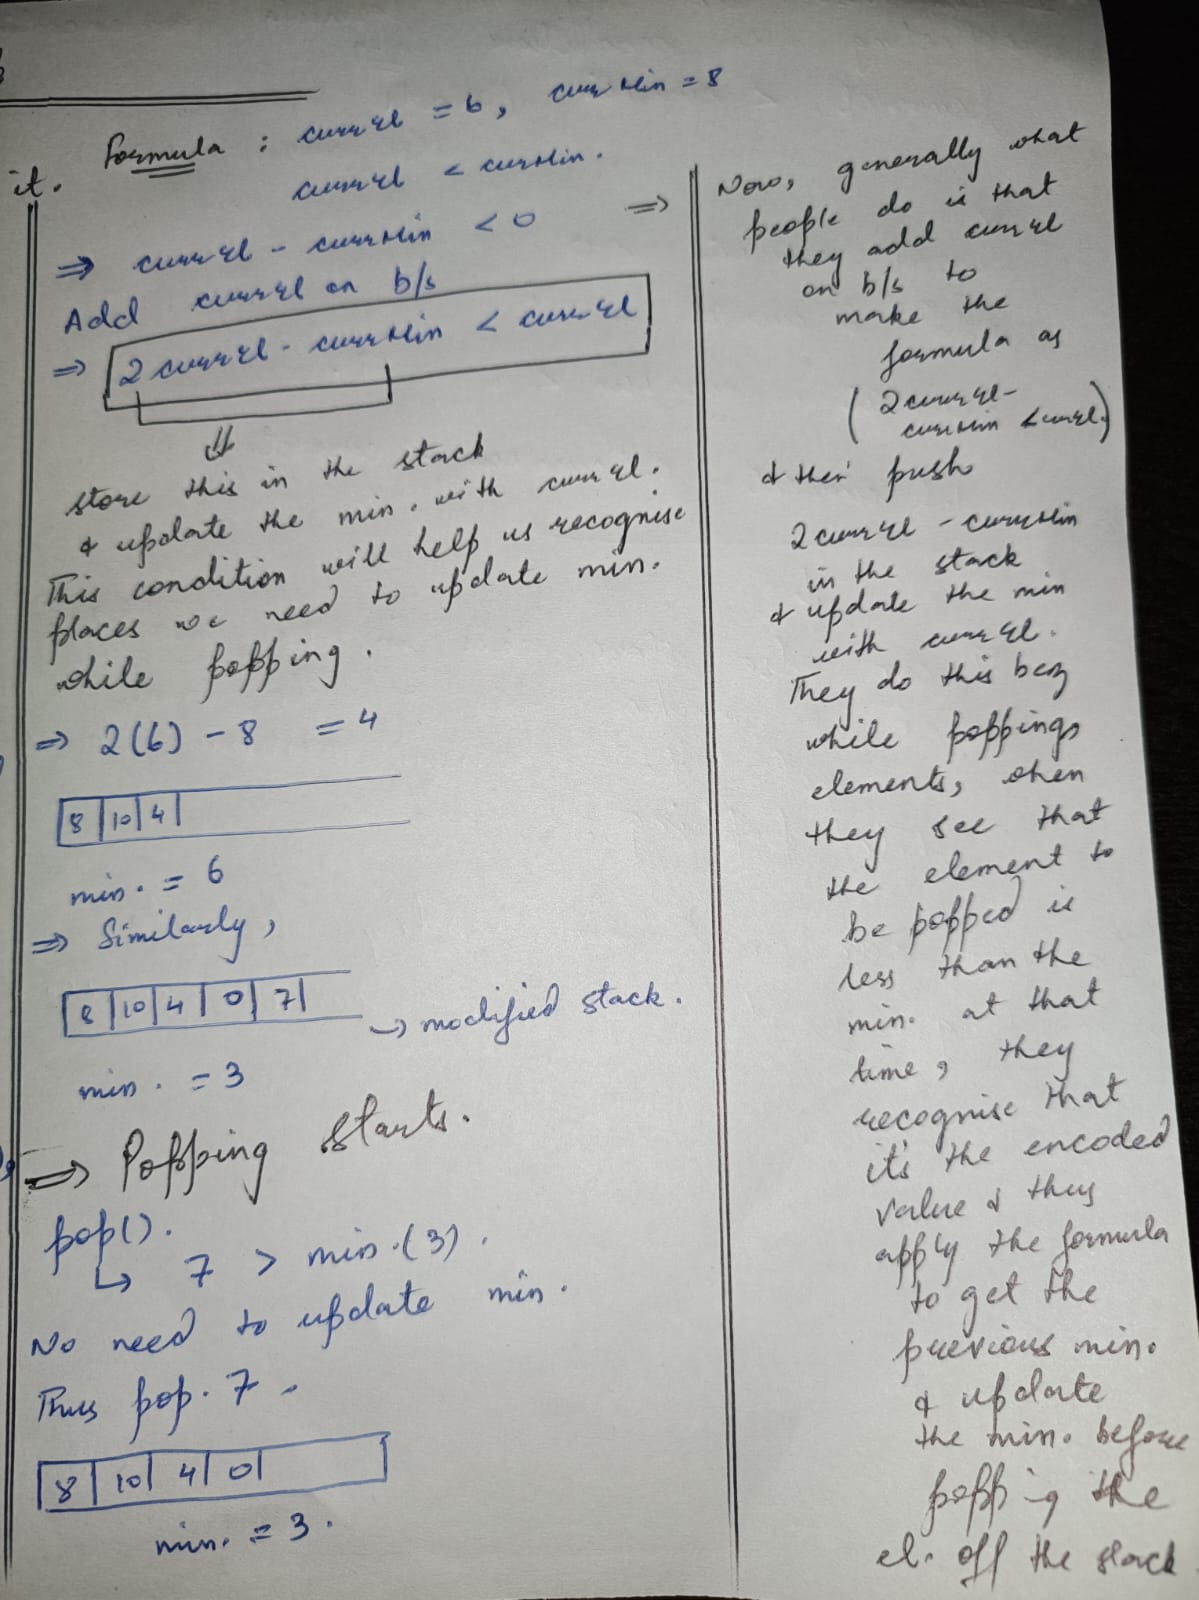 it.
Formula : curr el = 6, currMin = 8
curr el < currMin.
⇒ curr el - currMin < 0 ⇒
Add curr el on b/s
⇒ 2 curr el - currMin < curr el
⇓
store this in the stack
& update the min. with curr el.
This condition will help us recognise
places we need to update min.
while popping.
⇒ 2(6) - 8 = 4
8 | 10 | 4 |
min. = 6
⇒ Similarly,
8 | 10 | 4 | 0 | 7 |
→ modified stack.
min. = 3
⇒ Popping starts.
pop().
↳ 7 > min.(3).
No need to update min.
Thus pop. 7.
8 | 10 | 4 | 0 |
min. = 3.
Now, generally what
people do is that
they add curr el
on b/s to
make the
formula as
(2 curr el -
currMin < curr el.)
& then push
2 curr el - currMin
in the stack
& update the min
with curr el.
They do this bcz
while poppings
elements, when
they see that
the element to
be popped is
less than the
min. at that
time, they
recognise that
it's the encoded
value & thus
apply the formula
to get the
previous min.
& update
the min. before
popping the
el. off the stack